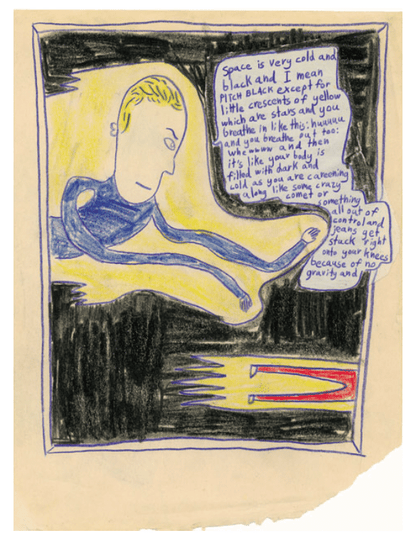 Space is very cold and
black and I mean
PITCH BLACK except for
little crescents of yellow
which are stars and you
breathe in like this: huuuuu
and you breathe out too:
whewwww and then
it's like your body is
filled with dark and
cold as you are careening
along like some crazy
comet or
omething
all out of
control and
jeans get
stuck right
onto your knees
because of no
gravity and